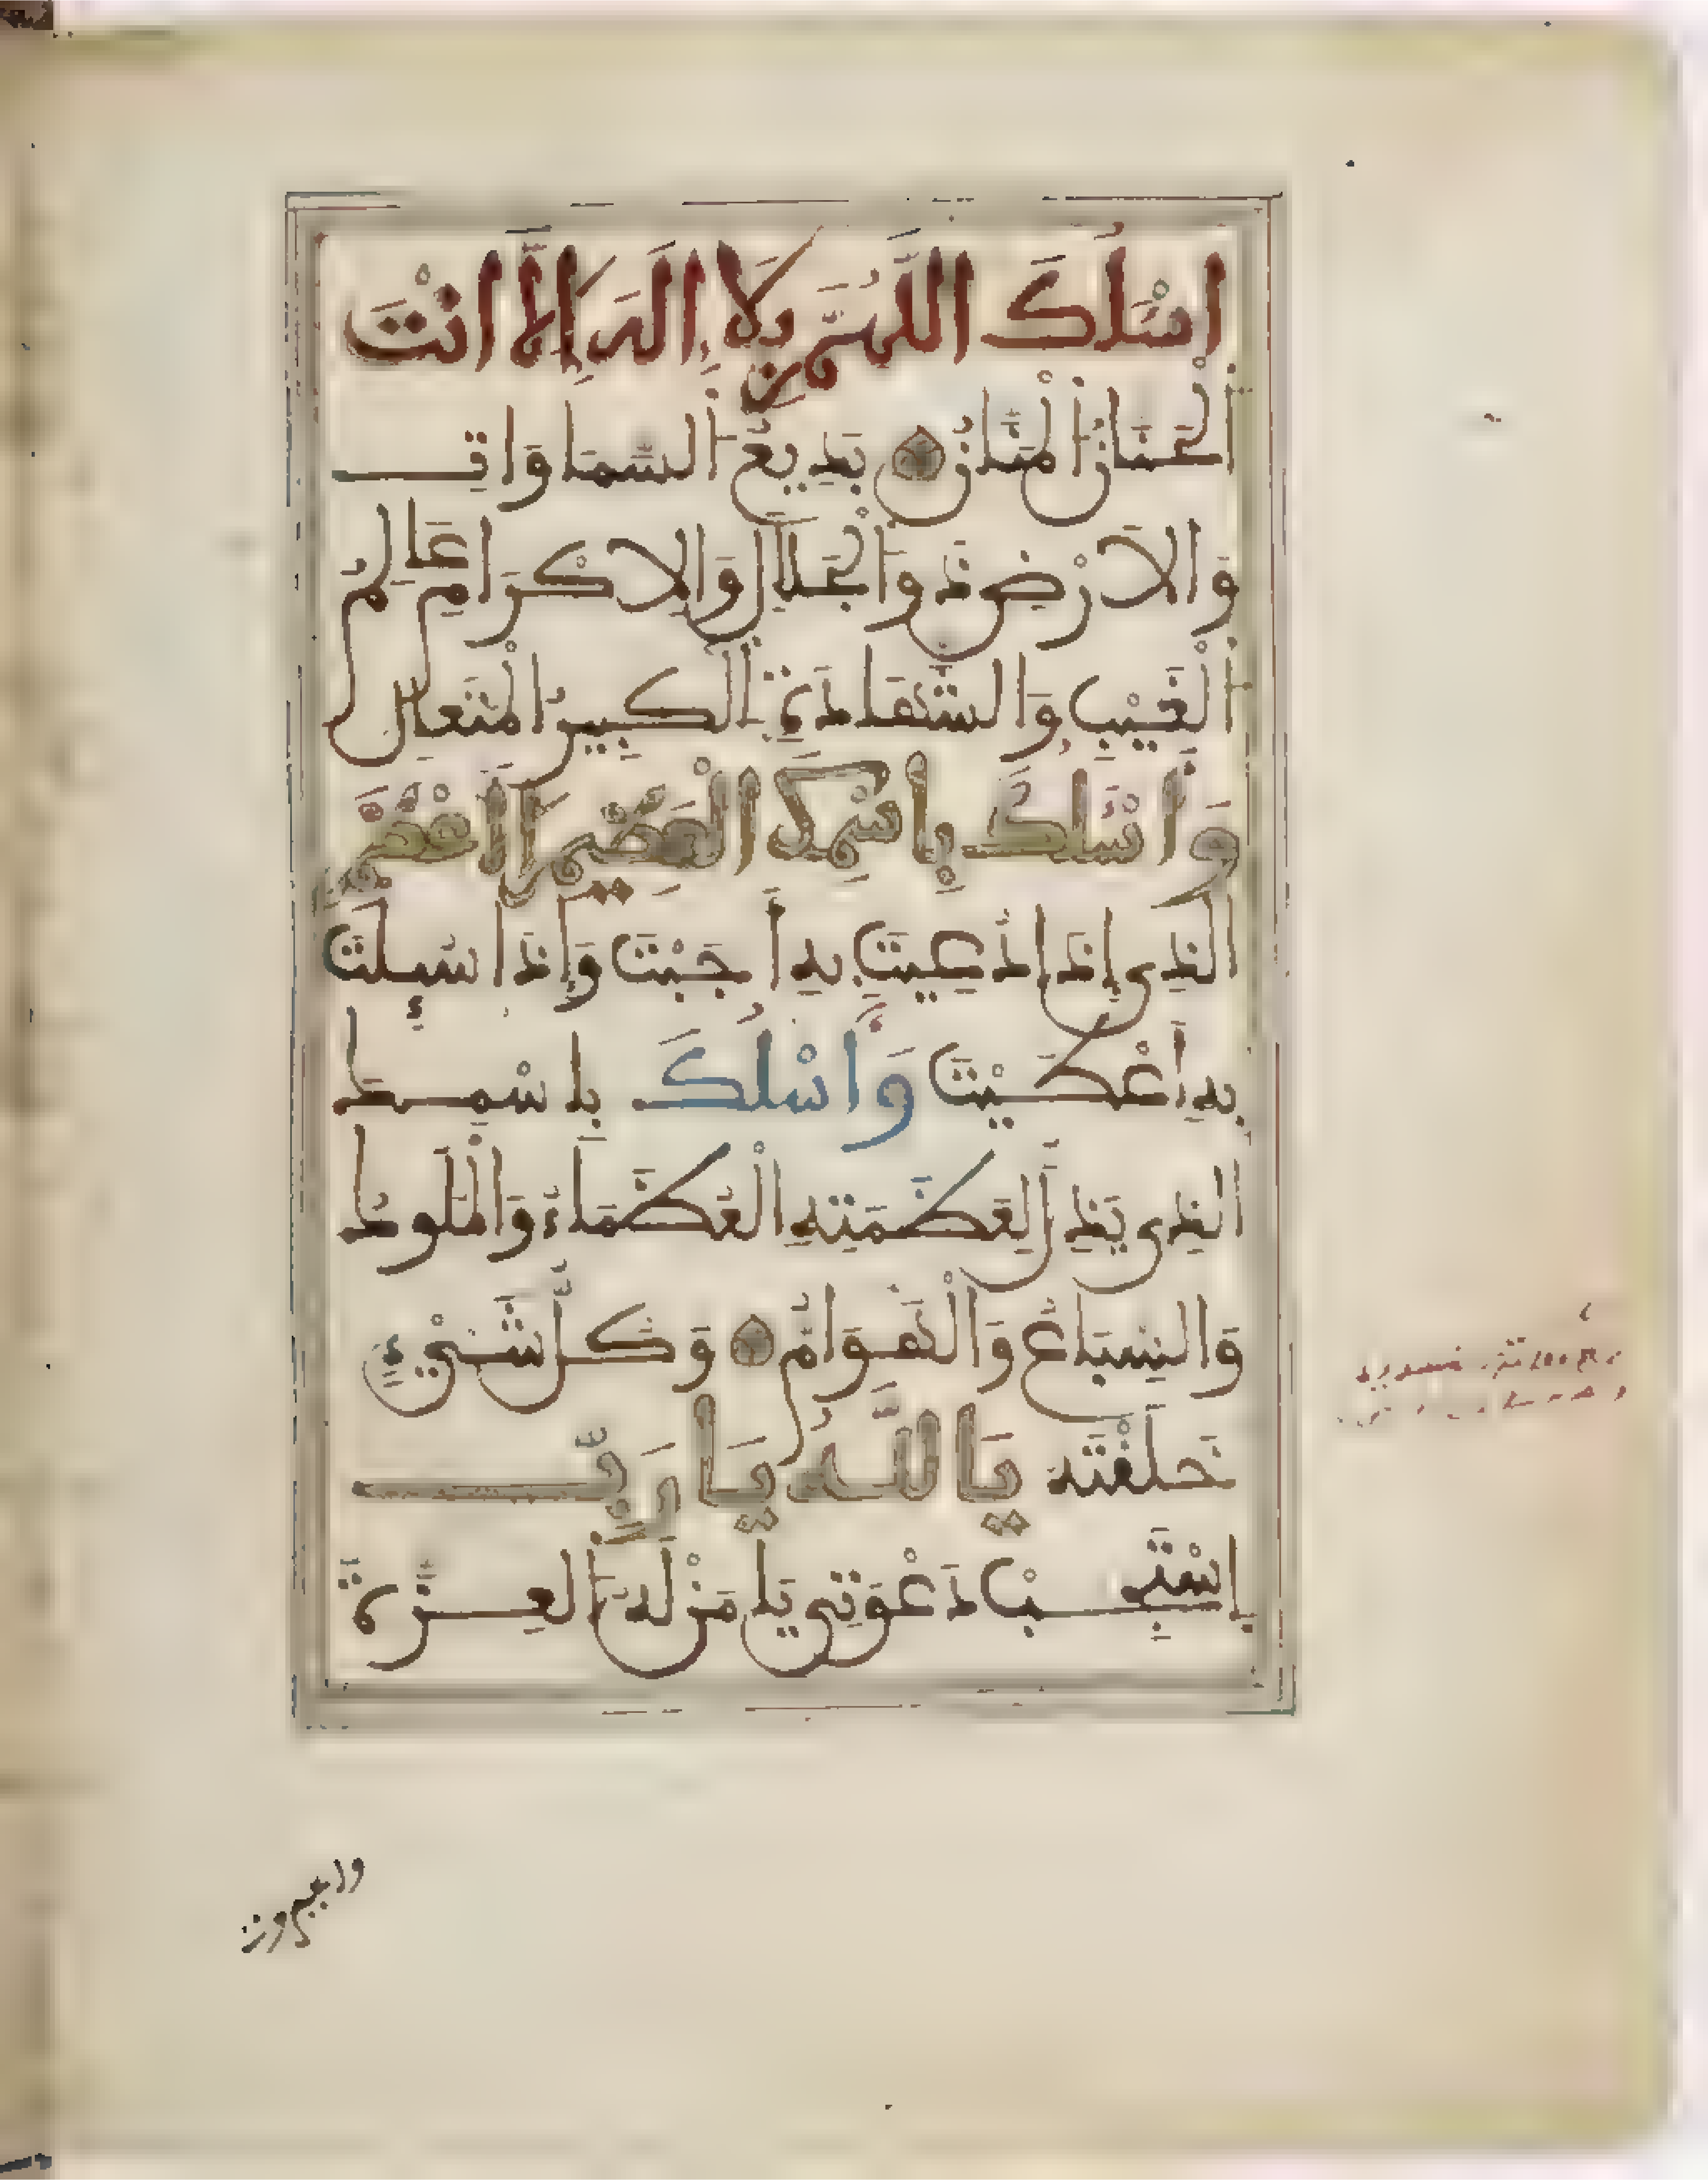 اَسْـَٔلُكَ اللَّهُمَّ بِلَا إِلَهَ إِلَّا أَنْتَ
الْحَنَّانُ الْمَنَّانُ بَدِيعُ السَّمَاوَاتِ
وَالْأَرْضِ ذُو الْجَلَالِ وَالْإِكْرَامِ عَالِمُ
الْغَيْبِ وَالشَّهَادَةِ الْكَبِيرُ الْمُتَعَالِ
وَأَسْـَٔلُكَ بِاسْمِكَ الْعَظِيمِ الْأَعْظَمِ
الَّذِي إِذَا دُعِيتَ بِهِ أَجَبْتَ وَإِذَا سُئِلْتَ
بِهِ أَعْطَيْتَ وَأَسْـَٔلُكَ بِاسْمِكَ
الَّذِي يَذِلُّ لِعَظَمَتِهِ الْعُظَمَاءُ وَالْمُلُوكُ
وَالسِّبَاعُ وَالْهَوَامُّ وَكُلُّ شَيْءٍ
خَلَقْتَهُ يَا اللَّهُ يَا رَبِّ
إِسْتَجِبْ دَعْوَتِي يَا مَنْ لَهُ الْعِزَّةُ
والجبروت